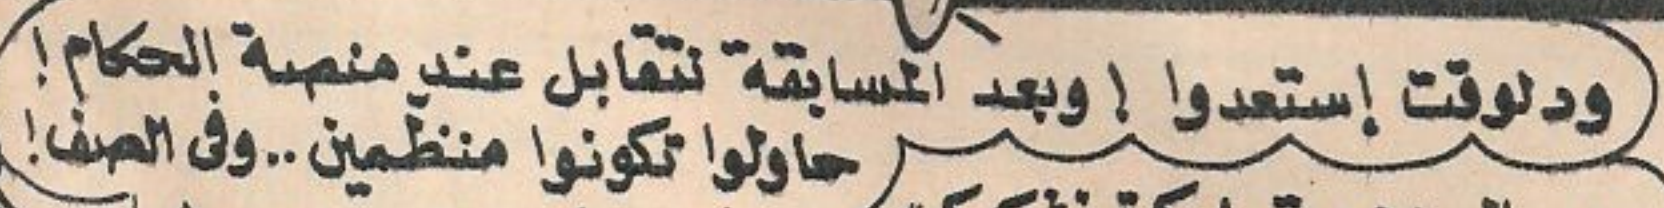 ودلوقت إستعدوا ! وبعد المسابقة نتقابل عند منصة الحكام !
حاولوا تكونوا منظمين .. وفى الصف !